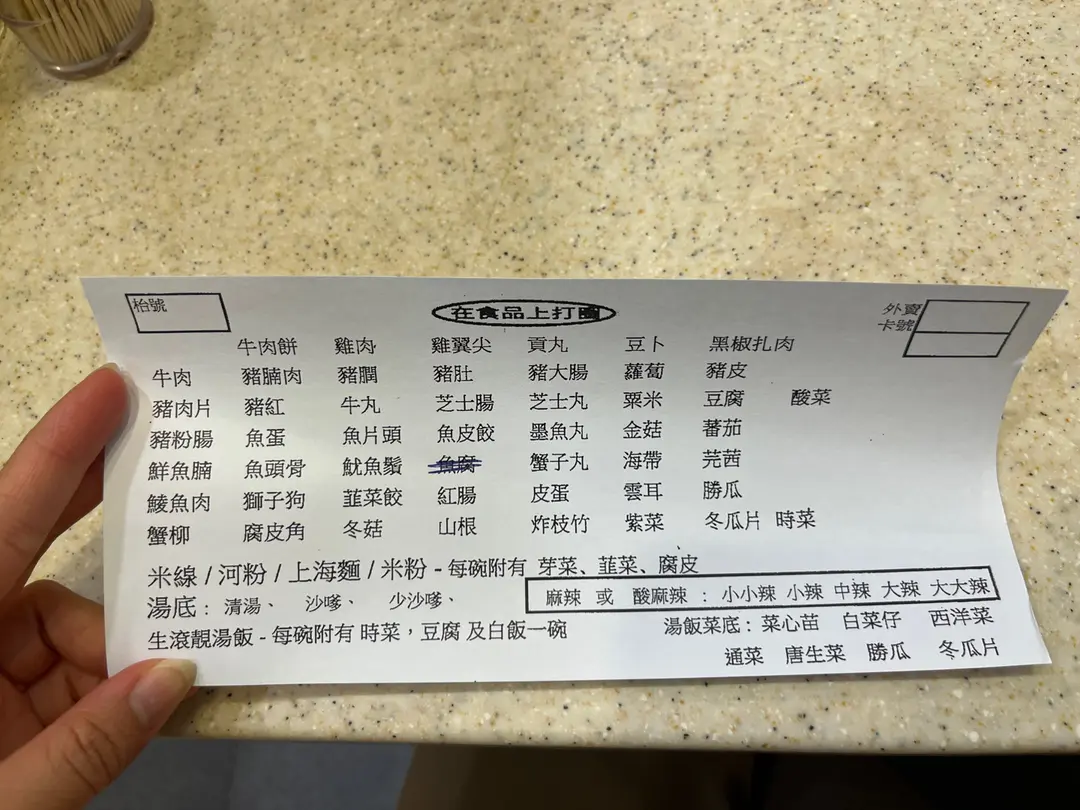 枱號
在食品上打圈
外賣
卡號
牛肉餅 雞肉 雞翼尖 貢丸 豆卜 黑椒扎肉
牛肉 豬腩肉 豬膶 豬肚 豬大腸 蘿蔔 豬皮
豬肉片 豬紅 牛丸 芝士腸 芝士丸 粟米 豆腐 酸菜
豬粉腸 魚蛋 魚片頭 魚皮餃 墨魚丸 金菇 蕃茄
鮮魚腩 魚頭骨 魷魚鬚 魚腐 蟹子丸 海帶 芫茜
鯪魚肉 獅子狗 韮菜餃 紅腸 皮蛋 雲耳 勝瓜
蟹柳 腐皮角 冬菇 山根 炸枝竹 紫菜 冬瓜片 時菜
米線 / 河粉 / 上海麵 / 米粉 - 每碗附有 芽菜、韮菜、腐皮
湯底 : 清湯、 沙嗲、 少沙嗲、 麻辣 或 酸麻辣 : 小小辣 小辣 中辣 大辣 大大辣
生滾靚湯飯 - 每碗附有 時菜，豆腐 及白飯一碗 湯飯菜底 : 菜心苗 白菜仔 西洋菜
通菜 唐生菜 勝瓜 冬瓜片